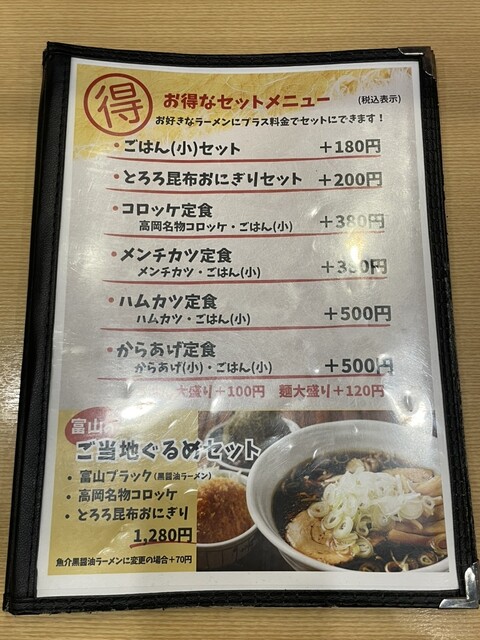 得
お得なセットメニュー (税込表示)
お好きなラーメンにプラス料金でセットにできます!
・ごはん(小)セット +180円
・とろろ昆布おにぎりセット +200円
・コロッケ定食 +380円
高岡名物コロッケ・ごはん(小)
・メンチカツ定食 +380円
メンチカツ・ごはん(小)
・ハムカツ定食 +500円
ハムカツ・ごはん(小)
・からあげ定食 +500円
からあげ(小)・ごはん(小)
大盛り+100円 麺大盛り+120円
富山
ご当地ぐるめセット
・富山ブラック(黒醤油ラーメン)
・高岡名物コロッケ
・とろろ昆布おにぎり
1,280円
魚介黒醤油ラーメンに変更の場合+70円